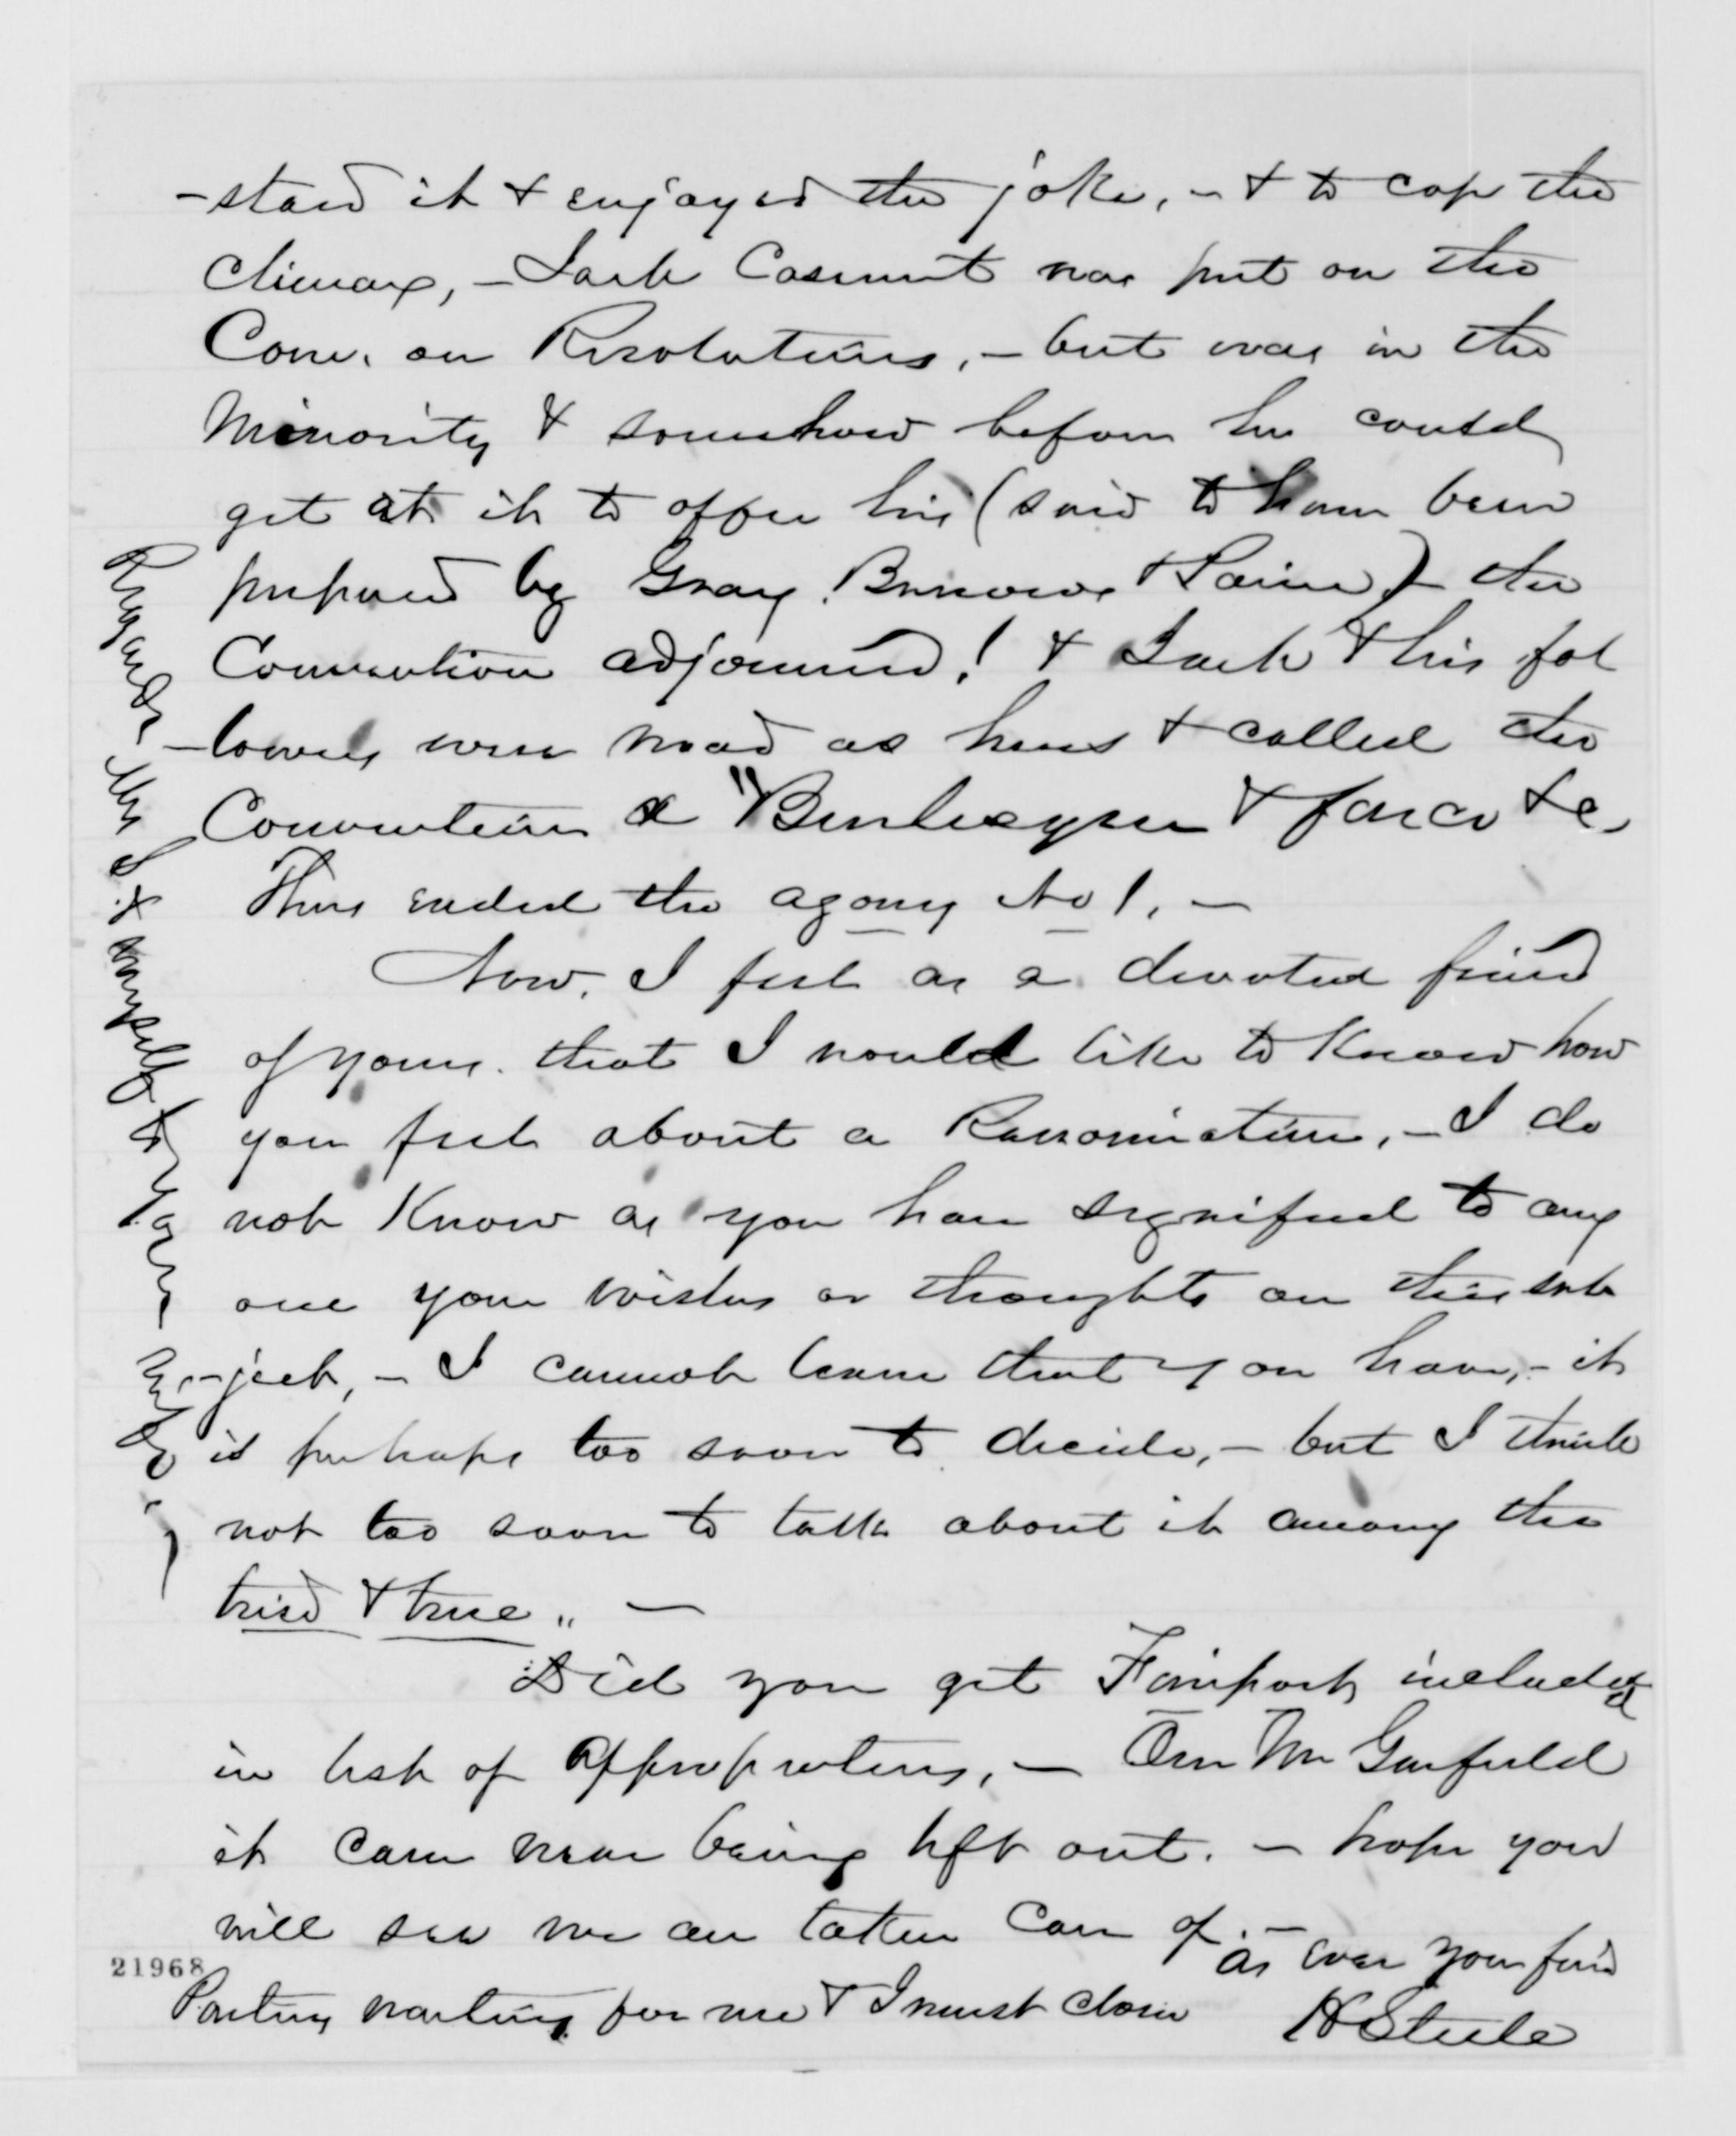 -stand it & enjoyed the joke, - & to cap the
Climax, - Jack Casement was put on the
Com. on Resolutions, - but was in the
Minority & somehow before he could
get at it to offer his (said to have been
prepared by Gray, Burrows & Paine) - the
Convention adjourned! & Jack & his fol
-lowers were mad as hens & called the
Convention a "Burlesque & farce &c,
Thus ended the agony No 1. -
Now, I feel as a devoted friend
of yours. that I would like to Know how
you feel about a Renomination, - I do
not Know as you have signified to any
one your wishes or thoughts on this sub
-ject, - I cannot learn that you have, - it
is perhaps too soon to decide, - but I think
not too soon to talk about it among the
tried & true" -
Did you get Fairport included
in list of appropriations, - Our Mr Garfield
it came near being left out. - hope you
will see we are taken care of. -
as ever your friend
Parties waiting for me & I must close
H Steele
21968
Regards Mrs S & myself to yours